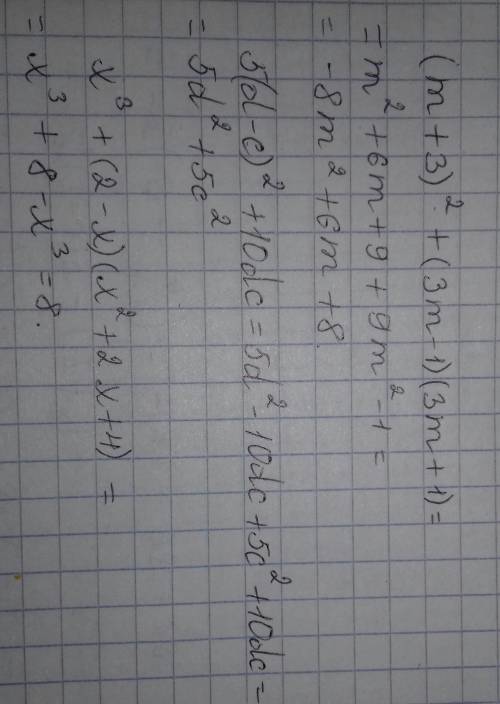 (m+3)² + (3m-1)(3m+1)=
= m² + 6m + 9 + 9m² - 1 =
= -8m² + 6m + 8.
5(d-c)² + 10dc = 5d² - 10dc + 5c² + 10dc =
= 5d² + 5c²
x³ + (2-x)(x² + 2x + 4) =
= x³ + 8 - x³ = 8.